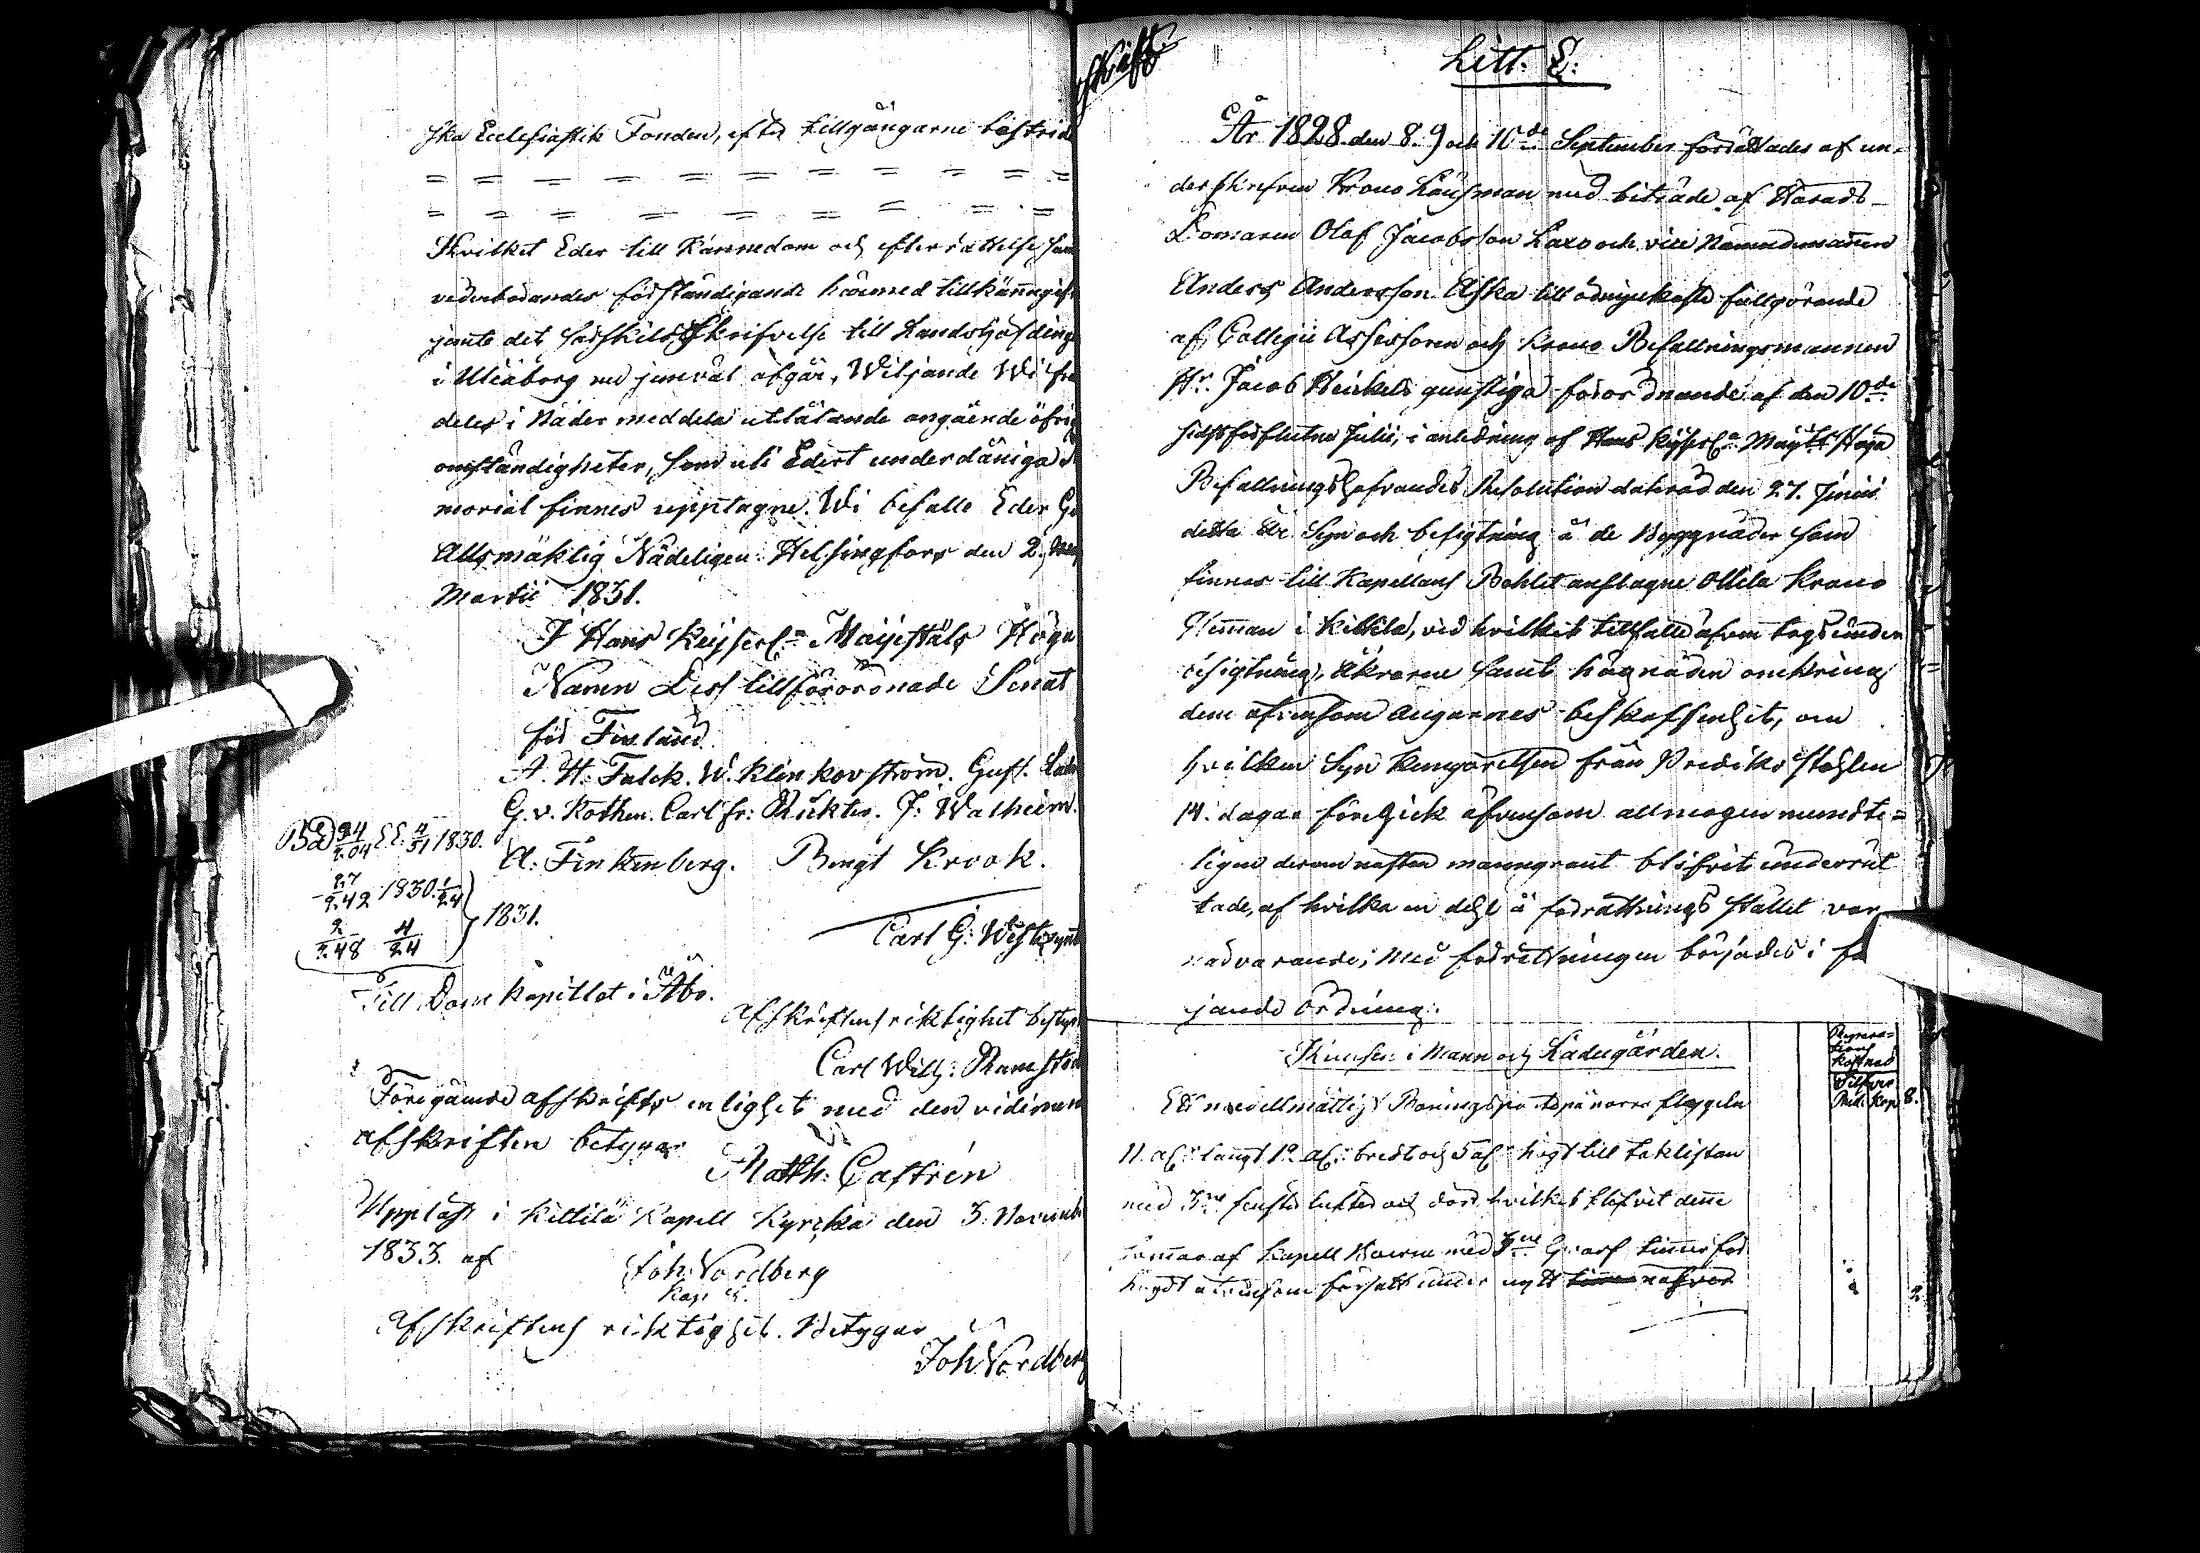 ska Ecclesiastik Fonden, efter tillgångarne bestrid
= = = = = = = = = =
= = = = = = = = =
Hvilket Eder till Kännedom och efterrättelse sam
vederbörandes förständigande härmed tillkännagif
jemte det särskild Skrifvelse till Landshöfdinge
i Uleåborg med jemväl afgår, Wiljande Wi fra
deles i Nåder meddela utlåtande angående öfri
omständigheter, som uti Edert underdåniga
morial finnes upptagne. Wi befalle Eder Gu
Allsmäktig Nådeligen. Helsingfors den 2.
Martii 1831.
I Hans Keijserl:a Maijestäts Höga
Namn Dess tillförordnade Senat
för Finland.
A. H. Falck. W. Klinkovström. Gust.
G. v. Kothen. Carl Fr: Richter. J: Walheim.
A: Finkenberg. Bengt Krook.
24/204 4/31 1830.
27/242 1830. 1/24
2/248 4/24 } 1831.
Carl G: Westzynt
Till Domkapitlet i Åbo.
Afskriftens riktighet betyg
Carl Wilh: Ramstr
Föregående afskrifts enlighet med den vidimer
afskriften betygar
Matth: Castrén
Uppläst i Kittilä Kapell Kyrcka den 3. Novemb
1833. af
Joh: Nordberg
Kap:
Afskriftens riktighet. Betygar
Joh Nordberg
Litt. E:
År 1828 den 8. 9 och 10de September förrättades af un-
derskrefven Krono Länsman med biträde af Härads-
Domaren Olof Jacobsson Laxo och vice Nämndemannen
Anders Andersson Aska till ödmjukaste fullgörande
af Collegii Assessoren och Krono Befallningsmannen
Hr. Jacob Heickels gunstiga förordnande af den 10de
sidstförflutne Julii, i anledning af Hans Kejserl:a Maij:ts Höga
Befallningshafvandes Resolution daterad den 27. Junii
detta år Syn och besigtning å de Byggnader som
finnes till Kapellans Bohlet anslagne Ollila Krono
Hemman i Kittilä, vid hvilket tillfälle äfven togs under
besigtning, Åkrarne samt hägnaden omkring
dem äfvensom ängarnes beskaffenhet, om
hvilken Syn kungörelsen från Prediko stohlen
14. dagar föregick äfvensom allmogen mundte=
ligen derom nästan manngrant blifvit underrät
tade, af hvilka en dehl å förrättnings stället voro
närvarande; Med förrättningen börjades i föl
jande Ordning:
Husen i Mann och Ladugården.
Repara=
tions
Kostnad
Silfver
Rub. Kop. 8.
Ett medellmåttigt Boningspörte på norra flygeln
11. al:r långt 10. al:r bredt och 5 al:r högt till taklistan
med 3ne fenster lufter och dörr hvilket blifvit denne
Sommar af Kapell Boerne med 3ne hvarf timmer för
högdt äfvensom försatt under nytt näfver
2